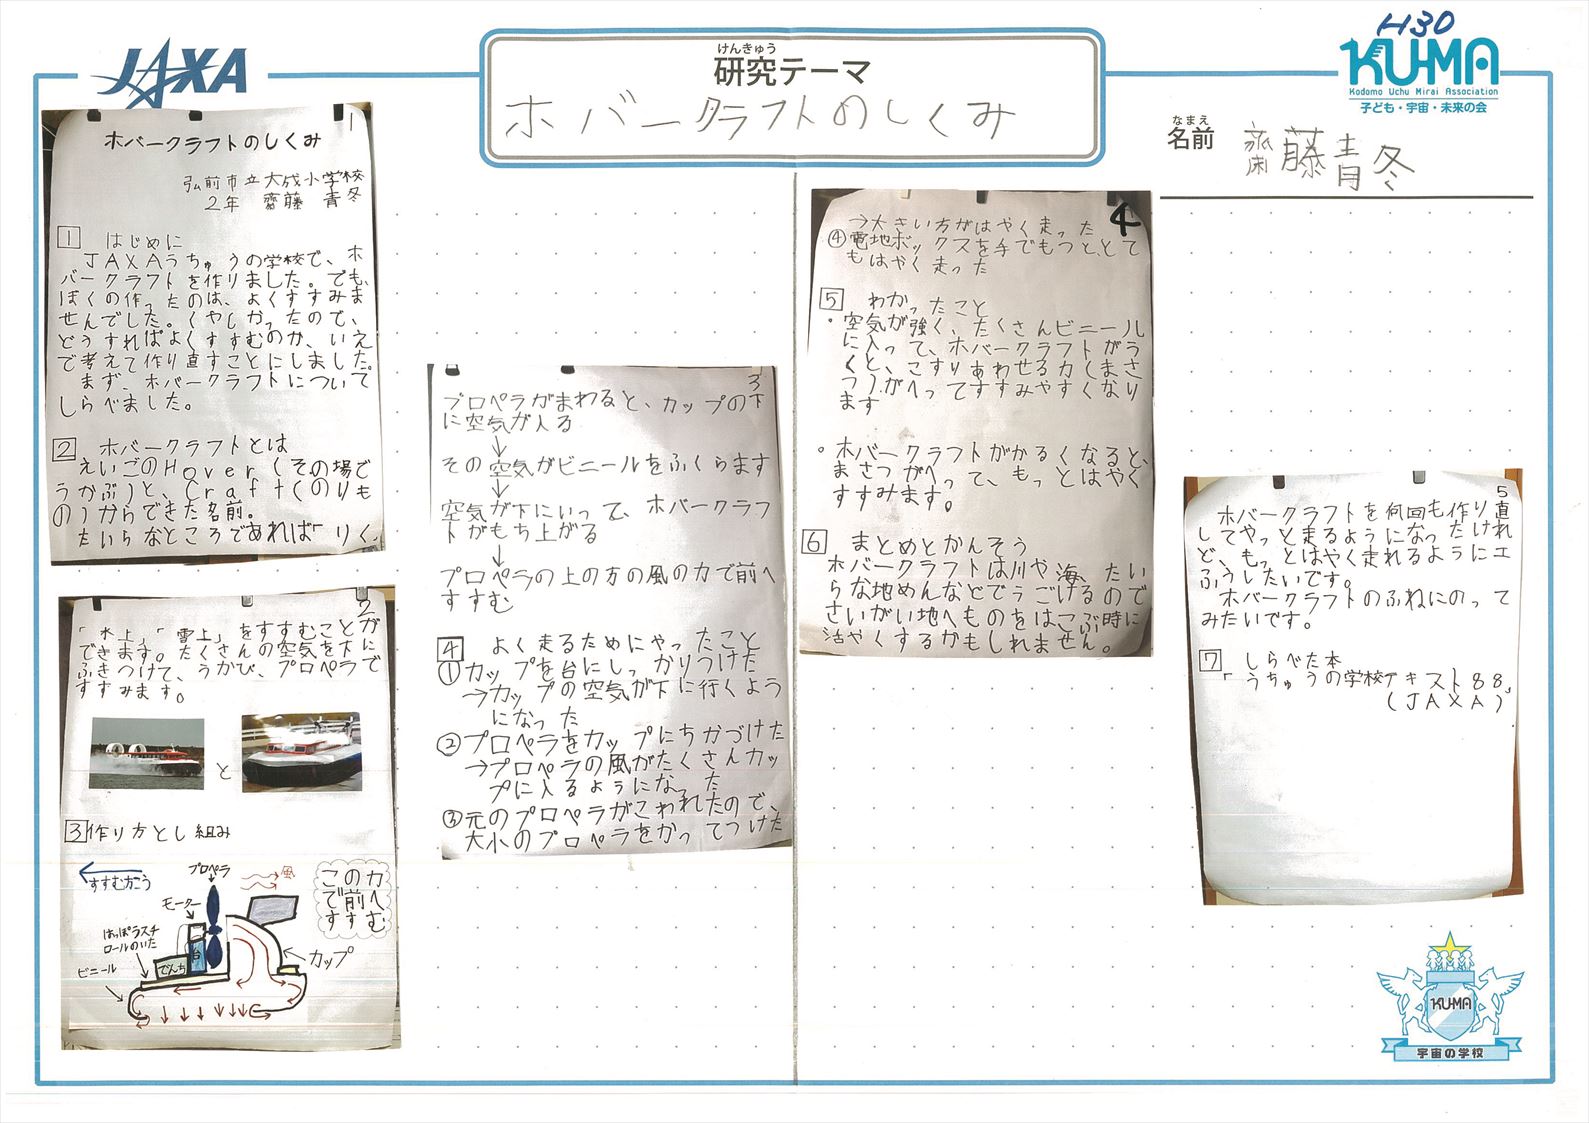 JAXA
けんきゅう
研究テーマ
ホバークラフトのしくみ
H30
KU-MA
Kodomo Uchu Mirai Association
子ども・宇宙・未来の会
なまえ
名前
齋藤青冬
1
ホバークラフトのしくみ
弘前市立大成小学校
2年 齋藤 青冬
1 はじめに
JAXAうちゅうの学校で、ホ
バークラフトを作りました。でも、
ぼくの作ったのは、よくすすみま
せんでした。くやしかったので、
どうすればよくすすむのか、いえ
で考えて作り直すことにしました。
まず、ホバークラフトについて
しらべました。
2 ホバークラフトとは
えいごのHover(その場で
うかぶ)と、Craft(のりも
の)からできた名前。
たいらなところであれば「りく」
2
「水上」「雪上」をすすむことが
できます。たくさんの空気を下に
ふきつけて、うかび、プロペラで
すすみます。
と
3 作り方とし組み
すすむ方こう
プロペラ
風
この力
で前へ
すすむ
モーター
はっぽうスチ
ロールのいた
台
でんち
ビニール
カップ
3
プロペラがまわると、カップの下
に空気が入る
↓
その空気がビニールをふくらます
↓
空気が下にいって、ホバークラフ
トがもち上がる
↓
プロペラの上の方の風の力で前へ
すすむ
4 よく走るためにやったこと
①カップを台にしっかりつけた
→カップの空気が下に行くよう
になった
②プロペラをカップにちかづけた
→プロペラの風がたくさんカッ
プに入るようになった
③元のプロペラがこわれたので、
大小のプロペラをかってつけた
4
→大きい方がはやく走った
④電地ボックスを手でもつと、とて
もはやく走った
5 わかったこと
・空気が強く、たくさんビニール
に入って、ホバークラフトがう
くと、こすりあわせる力(まさ
つ)がへってすすみやすくなり
ます
・ホバークラフトがかるくなると、
まさつがへって、もっとはやく
すすみます。
6 まとめとかんそう
ホバークラフトは川や海、たい
らな地めんなどでうごけるので
さいがい地へものをはこぶ時に
活やくするかもしれません。
5
ホバークラフトを何回も作り直
してやっと走るようになったけれ
ど、もっとはやく走れるようにエ
ふうしたいです。
ホバークラフトのふねにのって
みたいです。
7 しらべた本
「うちゅうの学校テキスト88」
(JAXA)
KU-MA
宇宙の学校